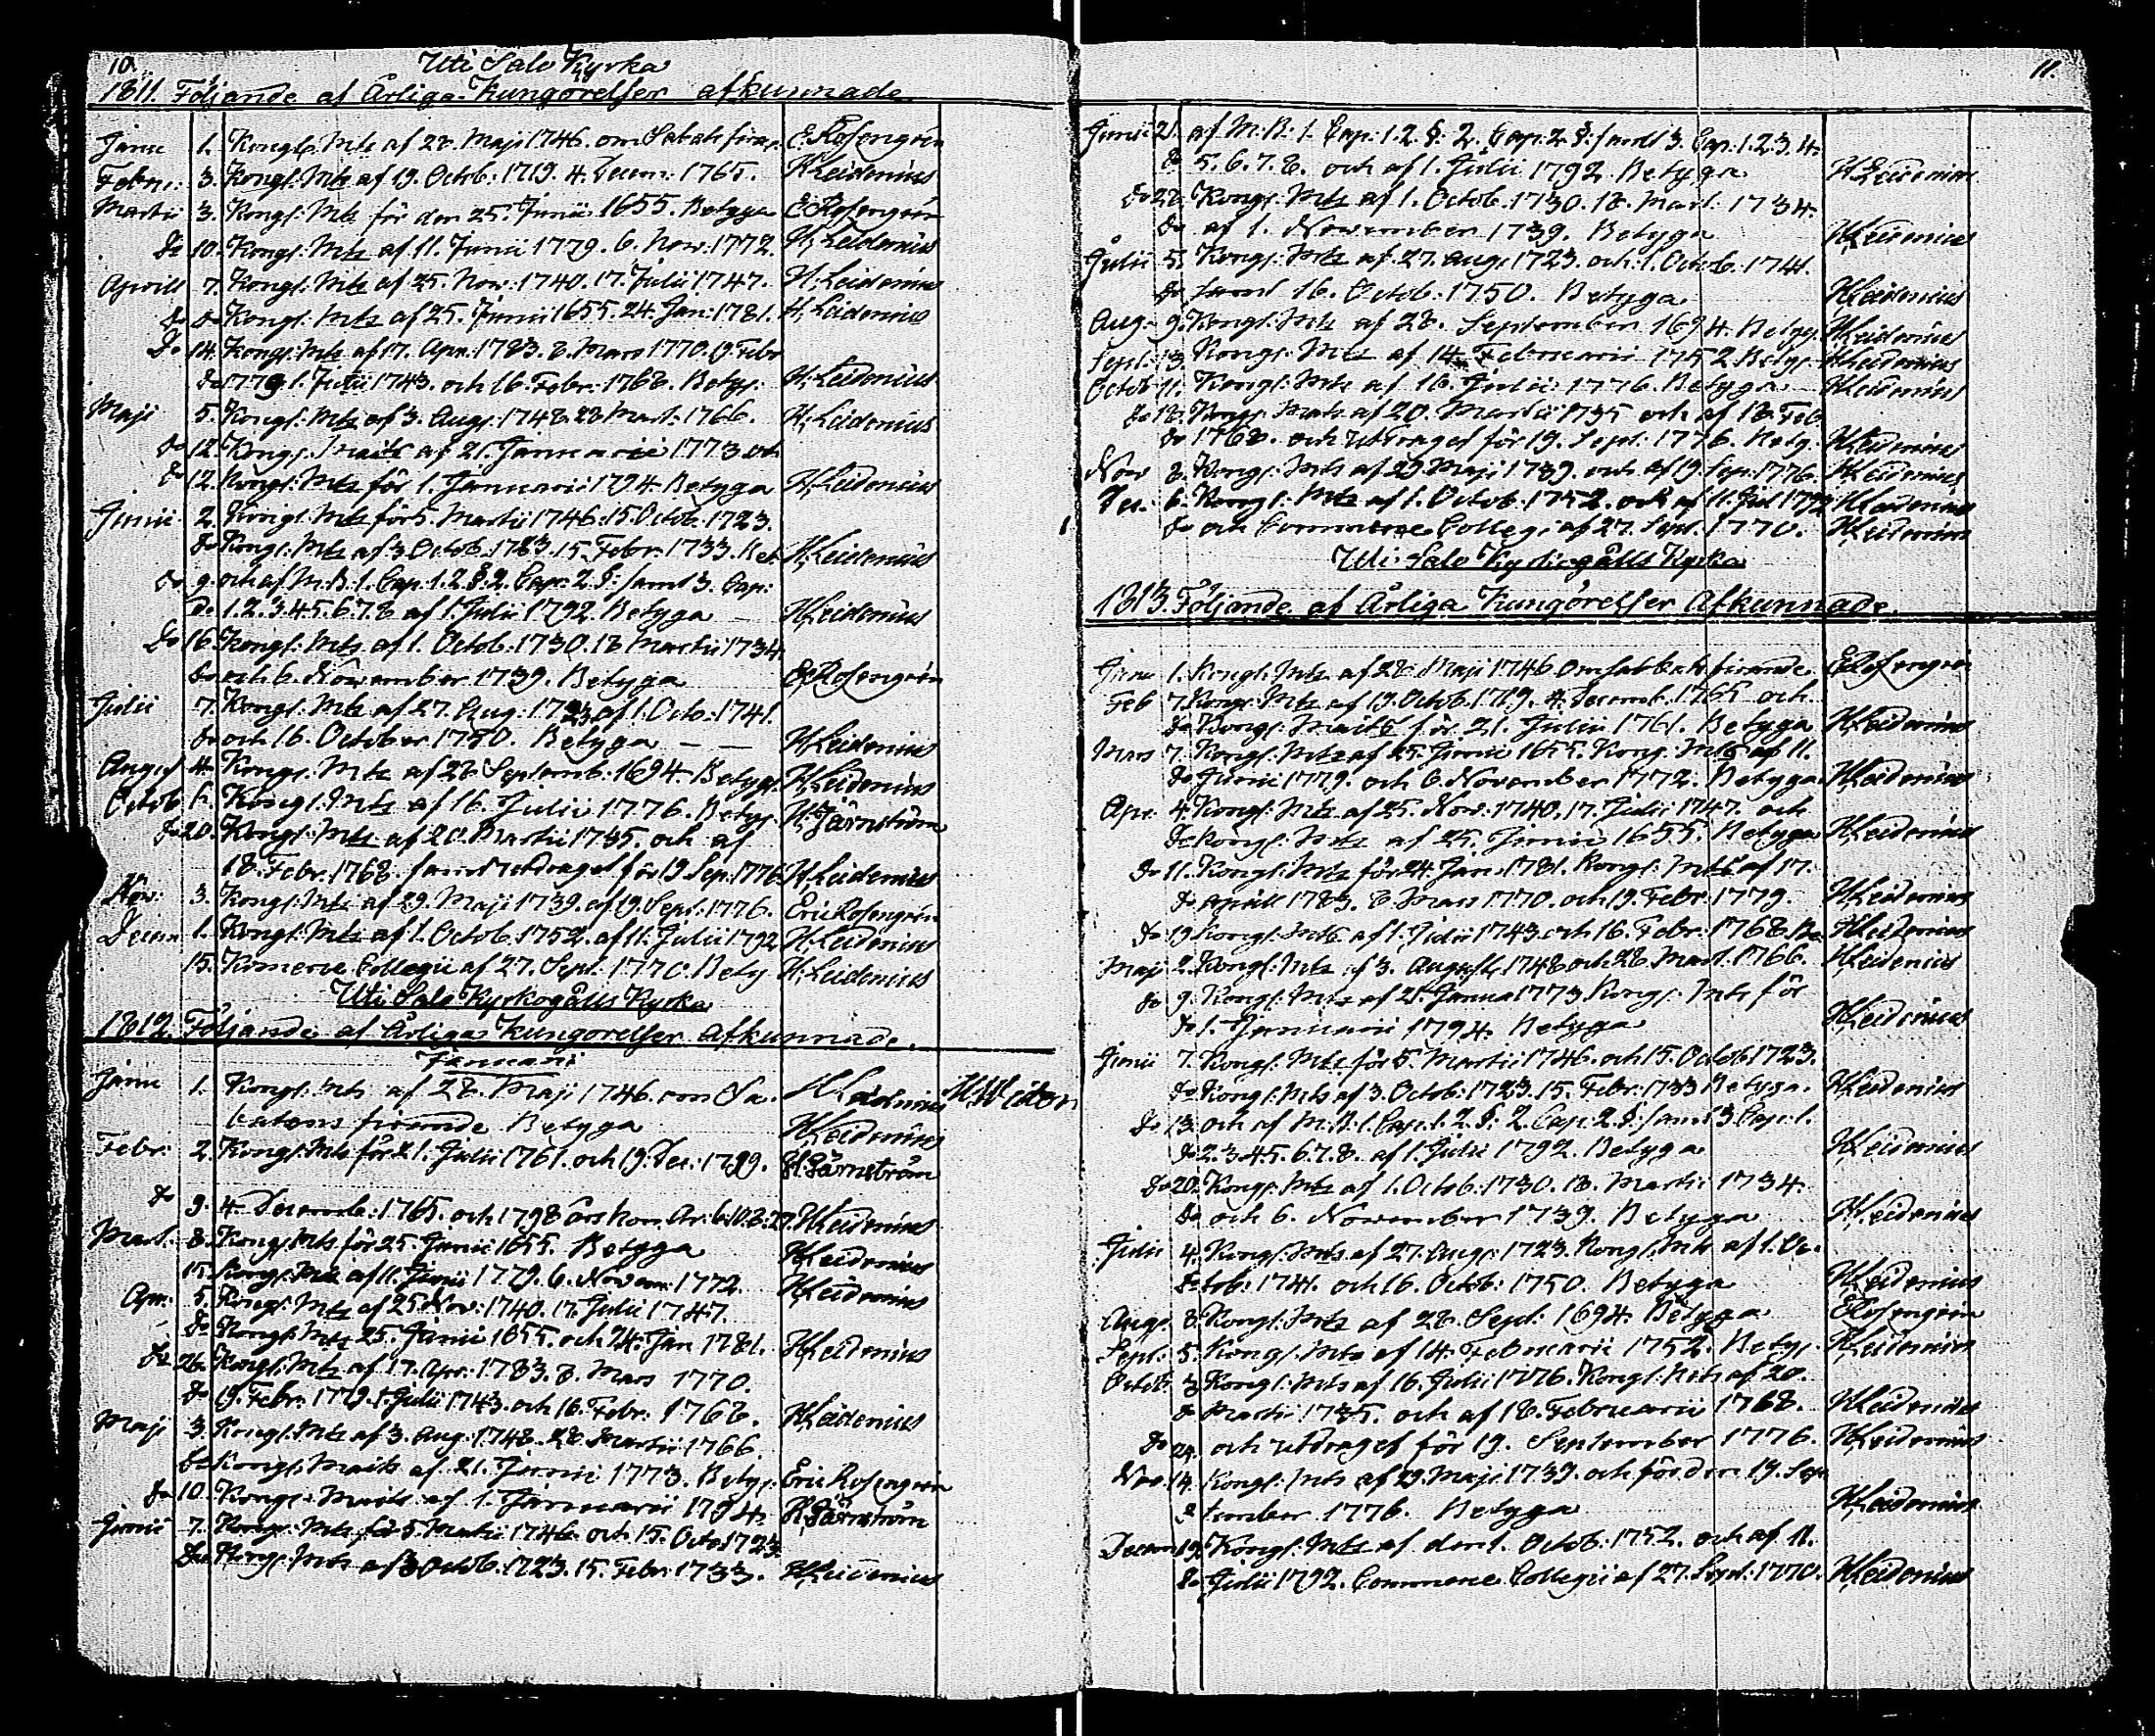 10.
Uti Salo Kyrka
1811. Följande af Årliga Kungörelser afkunnade
Janu 1. Kongl. Mts af 28. Maji 1746. om Sabats firan. E. Rosengrén
Febru: 3. Kongl: Mts af 19. Octob: 1719. 4. Decem: 1765. H. Leidenius
Martii 3. Kongl: Mts för den 25. Junii 1655. Betyga E. Rosengrén
Do 10. Kongl: Mts af 11. Junii 1779. 6. Nov: 1772. H. Leidenius
Aprill 7. Kongl: Mts af 25. Nov: 1740. 17. Julii 1747. H. Leidenius
Do Do Kongl: Mts af 25. Junii 1655. 24. Jan: 1781. H. Leidenius
Do 14. Kongl: Mts af 17. Apr. 1783. 8. Mars 1770. 19. Febr
Do 1779. 1. Julii 1743. och 16. Febr: 1768. Betyg: H. Leidenius
Maji 5. Kongl: Mts af 3. Aug: 1748. 28 Mart: 1766. H. Leidenius
Do 12. Kongl: Maits af 21. Januarii 1773 och
Do 12. Kongl: Mts för 1. Januarii 1794. Betyga H. Leidenius
Junii 2. Kongl: Mts för 5. Martii 1746. 15. Octob. 1723.
Do Kongl: Mts af 3 Octob. 1783. 15. Febr. 1733. Bet. H. Leidenius
Do 9. och af M. B. 1. Cap. 1. 2 §. 2. Cap. 2. §: samt 3. Cap:
Do 1. 2. 3. 4. 5. 6. 7. 8. af 1. Julii 1792. Betyga H. Leidenius
Do 16. Kongl: Mts af 1. Octob: 1730. 18 Martii 1734.
Do och 6. November 1739. Betyga E. Rosengrén
Julii 7. Kongl: Mts af 27. Aug: 1723 af 1. Octo: 1741.
Do och 16. October 1750. Betyga — — H. Leidenius
August 4. Kongl: Mts af 28 Septemb: 1694. Betyga H. Leidenius
Octob 6. Kongl: Mts af 16. Julii 1776. Betyg. H. Järnström
Do 20. Kongl: Mts af 20. Martii 1735. och af
18. Febr. 1768. samt utdraget för 19 Sep. 1776 H. Leidenius
Nov: 3. Kongl: Mts af 29. Maji 1739. af 19. Sept: 1776. Eric Rosengrén
Decem 1. Kongl: Mts af 1. Octob. 1752. af 11. Julii 1792 H. Leidenius
15. Komerce Collegii af 27. Sept. 1770. Bety H. Leidenius
Uti Salo Kyrkogälls Kyrka
1812. Följande af Årliga Kungörelser afkunnade.
Januari
Janu 1. Kongl: Mts af 28. Maji 1746. om Sa- H Leidenius
batens firande Betyga H. Leidenius
Febr: 2. Kongl: Mts för 21. Julii 1761. och 19. Dec: 1799. H. Järnström
Do 9. 4. Decemb: 1765. och 1798 H. Leidenius
Mart. 8. Kongl: Mts för 25. Junii 1655. Betyga H. Leidenius
15. Kongl: Mts af 11. Junii 1779. 6. Novem: 1772. H. Leidenius
Apr: 5. Kongl: Mts af 25 Nov: 1740. 17. Julii 1747.
Do Kongl: Mts 25. Junii 1655. och 24. Jan 1781. H. Leidenius
Do 26. Kongl: Mts af 17. Apr: 1783. 8. Mars 1770.
Do 19. Febr: 1779. 1. Julii 1743. och 16. Febr: 1768. H. Leidenius
Maji 3. Kongl: Mts af 3. Aug: 1748. 28 Martii 1766.
Do Kongl: Maits af 21. Junii 1773. Betyg. Eric Rosengrén
Do 10. Kongl: Maits af 1. Januarii 1794. H. Järnström
Junii 7. Kongl: Mts för 5. Martii 1746. och 15. Octo 1723.
Do Kongl: Mts af 3 Octob. 1723. 15. Febr 1733. H. Leidenius
11.
Junii 21. af M: B: 1. Cap: 1. 2. §: 2. Cap: 2 §: samt 3. Cap. 1. 2. 3. 4.
Do 5. 6. 7. 8. och af 1. Julii 1792. Betyga H. Leidenius
Do 28. Kongl: Mts af 1. Octob. 1730. 18. Mart. 1734.
Do af 1. November 1739. Betyga H. Leidenius
Julii 5. Kongl: Mts af 27. Aug. 1723. och 1. Octob. 1741.
Do samt 16. Octob: 1750. Betyga H. Leidenius
Aug: 9. Kongl: Mts af 28. September 1694. Betyg. H. Leidenius
Sept: 13. Kongl: Mts af 14. Februarii 1752 Betyg. H. Leidenius
Octob 11. Kongl: Mts af 16. Julii 1776. Betyga H. Leidenius
Do 18. Kongl: Mats af 20. Martii 1735 och af 18. Feb
Do 1768. och utdraget för 19. Sept: 1776. Betyg. H. Leidenius
Nov 8. Kongl: Mts af 29. Maji 1739. och af 19. Sep: 1776. H. Leidenius
Dec. 6. Kongl: Mts af 1. Octob. 1752. och af 11. Jul 1792 H. Leidenius
Do och Commerce Colleg: af 27. Sept. 1770. H. Leidenius
Uti Salo Kyrkogälls Kyrka
1813. Följande af Årliga Kungörelser Afkunnade.
Janu 1. Kongl: Mts af 28 Maji 1746 om sabbats firande E. Rosengrén
Feb 7. Kongl: Mts af 19. Octob. 1719. 4. Decemb. 1765 och
Do Kongl: Maits för 21. Julii 1761. Betyga H. Leidenius
Mars 7. Kongl: Mts af 25. Junii 1655. Kong: Mts af 11.
Do Junii 1779. och 6. November 1772. Betyga H. Leidenius
Apr. 4. Kongl: Mts af 25. Nov: 1740. 17. Julii 1747. och
Do Kongl: Mts af 25. Junii 1655. Betyga H. Leidenius
Do 11. Kongl: Mts för 24. Jan: 1781. Kongl: Mts af 17.
Do Aprill 1783. 8. Mars 1770. och 19. Febr. 1779. H. Leidenius
Do 19 Kongl: Mts af 1. Julii 1743. och 16. Febr: 1768. Be H. Leidenius
Maji 2. Kongl: Mts af 3. Augusti 1748 och 28. Mart. 1766. H. Leidenius
Do 9. Kongl: Mts af 21. Janua 1773 Kongl: Mts för
Do 1. Januarii 1794. Betyga H. Leidenius
Junii 7. Kongl: Mts för 5. Martii 1746. och 15. Octob. 1723.
Do Kongl: Mts af 3. Octob: 1723. 15. Febr: 1733 Betyga. H. Leidenius
Do 13. och af M: B: 1. Cap. 1. 2. §: 2. Cap: 2. §: samt 3 Cap: 1.
Do 2. 3. 4. 5. 6. 7. 8. af 1. Julii 1792. Betyga H. Leidenius
Do 20. Kongl: Mts af 1. Octob. 1730. 18. Marti: 1734.
Do och 6. November 1739. Betyga H. Leidenius
Julii 4. Kongl: Mts af 27. Aug: 1723. Kongl. Mts af 1. Oc-
Do tob: 1741. och 16. Octob: 1750. Betyga H. Leidenius
Aug. 8. Kongl: Mts af 28. Sept: 1694. Betyga E. Rosengrén
Sept: 5. Kongl: Mts af 14. Februarii 1752. Betyg. H. Leidenius
Octob 3. Kongl: Mts af 16. Julii 1776. Kongl. Mts af 20.
Do Martii 1735. och af 18. Februarii 1768. H. Leidenius
Do 24. och utdraget för 19. September 1776. H. Leidenius
Nov. 14. Kongl: Mts af 29. Maji 1739. och för den 19. Sep-
tember 1776. Betyga H. Leidenius
Decem 19. Kongl: Mts af den 1. Octob: 1752. och af 11.
Do Julii 1792. Commerce Collegii af 27. Sept: 1770. H. Leidenius